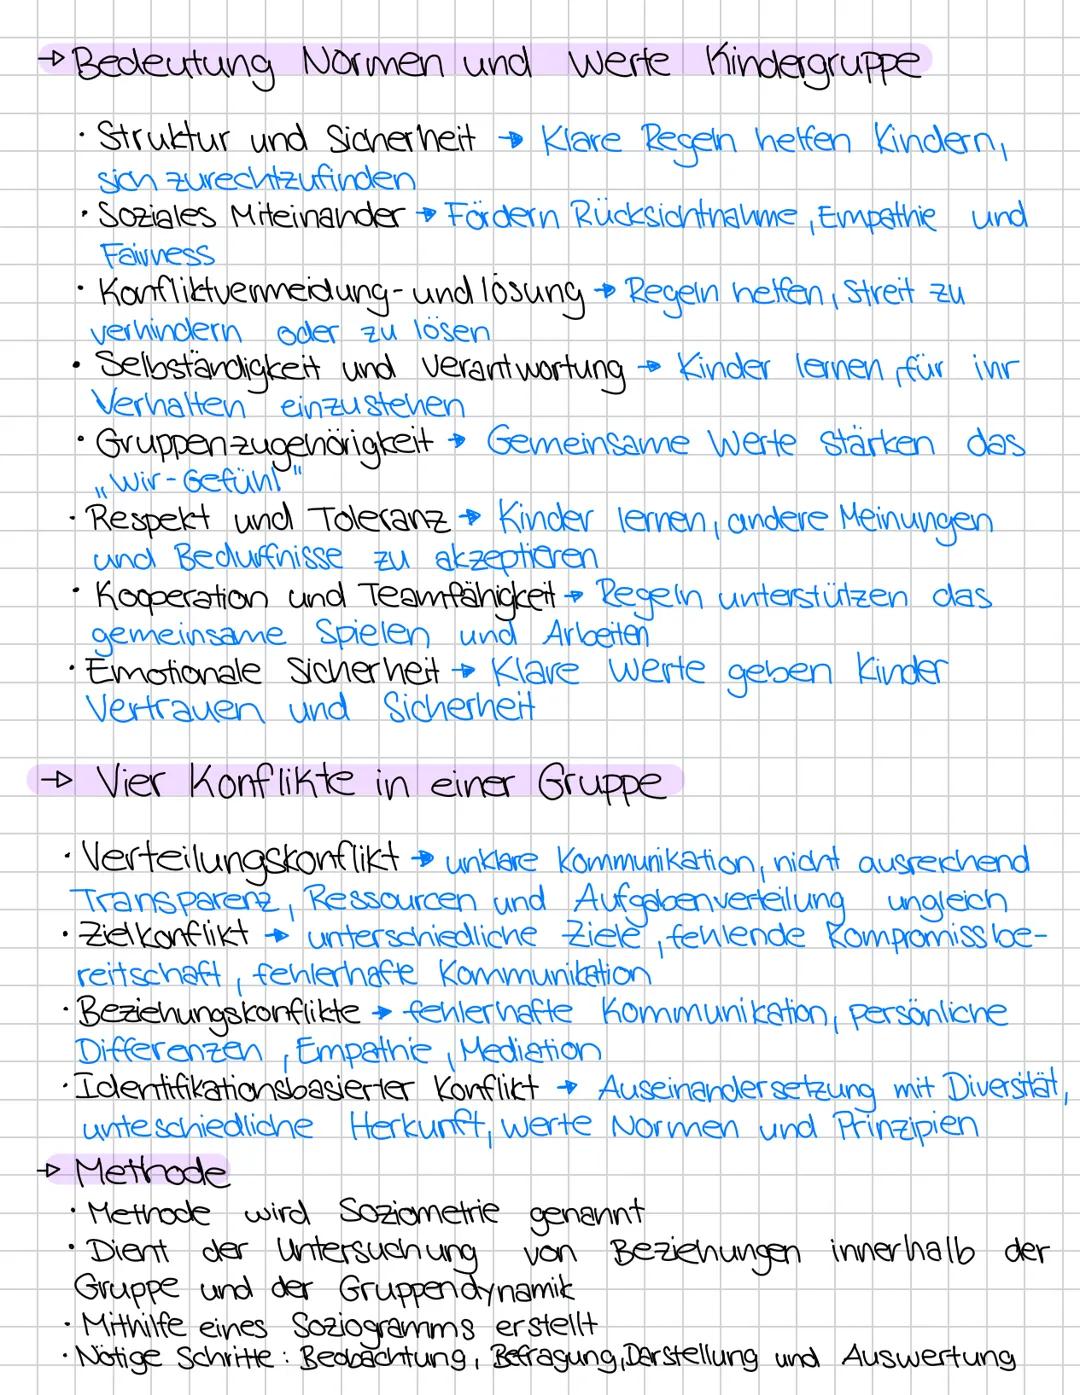 → Bedeutung Normen und Werte Kindergruppe
· Struktur und Sicherheit → Klare Regeln helfen Kindern,
sich zurechtzufinden
· Soziales Miteinander → Fördern Rücksichtnahme, Empathie und
Fairness
· Konfliktvermeidung- und lösung → Regeln helfen, Streit zu
verhindern oder zu lösen
· Selbständigkeit und Verantwortung → Kinder lernen, für ihr
Verhalten einzustehen
· Gruppenzugehörigkeit → Gemeinsame Werte stärken das
„Wir-Gefühl"
· Respekt und Toleranz → Kinder lernen, andere Meinungen
und Bedurfnisse zu akzeptieren
· Kooperation und Teamfähigkeit → Regeln unterstützen das
gemeinsame Spielen und Arbeiten
· Emotionale Sicherheit → Klare Werte geben Kinder
Vertrauen und Sicherheit
→ Vier Konflikte in einer Gruppe
· Verteilungskonflikt → unklare Kommunikation, nicht ausreichend
Transparenz, Ressourcen und Aufgabenverteilung ungleich
· Zielkonflikt → unterschiedliche Ziele, fehlende Kompromissbe-
reitschaft, fehlerhafte Kommunikation
· Beziehungskonflikte → fehlerhafte Kommunikation, persönliche
Differenzen, Empathie, Mediation
· Identifikationsbasierter Konflikt → Auseinandersetzung mit Diversität,
unteschiedliche Herkunft, Werte Normen und Prinzipien
→ Methode
· Methode wird Soziometrie genannt
· Dient der Untersuchung von Beziehungen innerhalb der
Gruppe und der Gruppendynamik
· Mithilfe eines Soziogramms erstellt
· Nötige Schritte: Beobachtung, Befragung, Darstellung und Auswertung